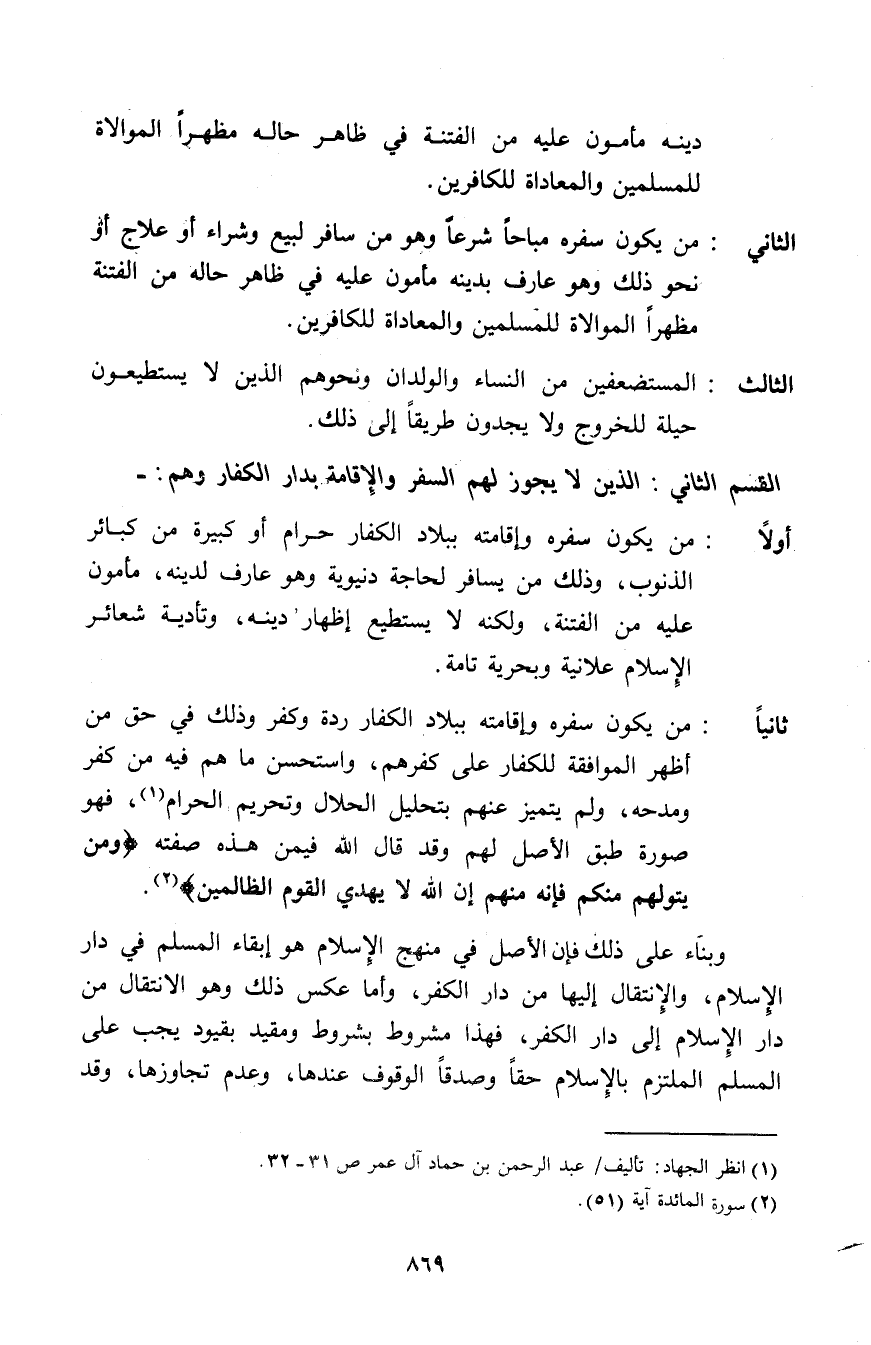 دينـه مأمـون عليه من الفتنـة في ظاهـر حالـه مظهـراً الموالاة
للمسلمين والمعاداة للكافرين.
الثاني : من يكون سفره مباحاً شرعاً وهو من سافر لبيع وشراء أو علاج أو
نحو ذلك وهو عارف بدينه مأمون عليه في ظاهر حاله من الفتنة
مظهراً الموالاة للمسلمين والمعاداة للكافرين.
الثالث : المستضعفين من النساء والولدان ونحوهم الذين لا يستطيعـون
حيلة للخروج ولا يجدون طريقاً إلى ذلك.
القسم الثاني : الذين لا يجوز لهم السفر والإقامة بدار الكفار وهم : -
أولاً : من يكون سفره وإقامته ببلاد الكفار حـرام أو كبيرة من كبـائر
الذنوب، وذلك من يسافر لحاجة دنيوية وهو عارف لدينه، مأمون
عليه من الفتنة، ولكنه لا يستطيع إظهار دينـه، وتأديـة شعائـر
الإسلام علانية وبحرية تامة.
ثانياً : من يكون سفره وإقامته ببلاد الكفار ردة وكفر وذلك في حق من
أظهر الموافقة للكفار على كفرهم، واستحسن ما هم فيه من كفر
ومدحه، ولم يتميز عنهم بتحليل الحلال وتحريم الحرام(١)، فهو
صورة طبق الأصل لهم وقد قال الله فيمن هـذه صفته ﴿ومن
يتولهم منكم فإنه منهم إن الله لا يهدي القوم الظالمين﴾(٢).
وبناء على ذلك فإن الأصل في منهج الإسلام هو إبقاء المسلم في دار
الإسلام، والإنتقال إليها من دار الكفر، وأما عكس ذلك وهو الانتقال من
دار الإسلام إلى دار الكفر، فهذا مشروط بشروط ومقيد بقيود يجب على
المسلم الملتزم بالإسلام حقاً وصدقاً الوقوف عندها، وعدم تجاوزها، وقد
(١) انظر الجهاد: تأليف/ عبد الرحمن بن حماد آل عمر ص ٣١ - ٣٢.
(٢) سورة المائدة آية (٥١).
٨٦٩